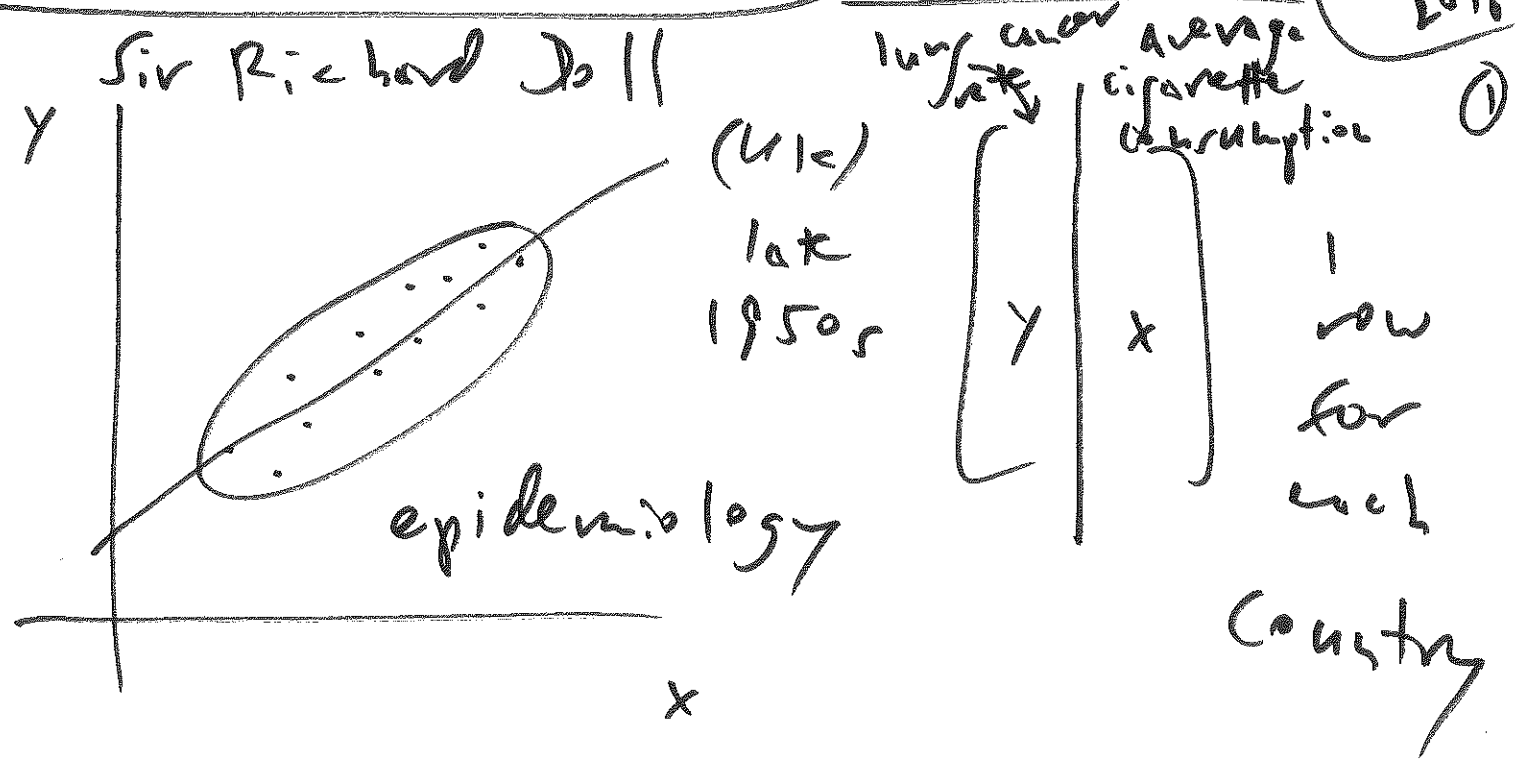 Sir Richard Doll
(UK)
late
1950s
epidemiology
y
x
lung cancer
rate
average
cigarette
consumption
①
y
x
1
row
for
each
Country